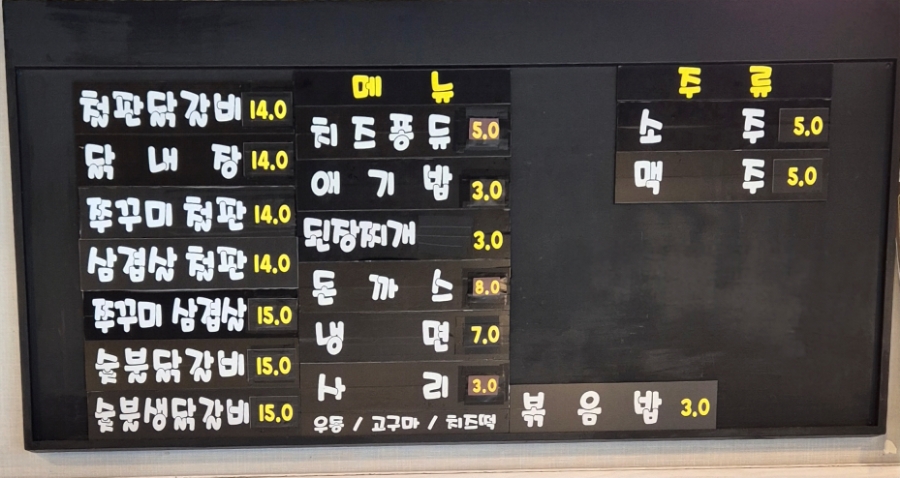 철판닭갈비 14.0
닭내장 14.0
쭈꾸미 철판 14.0
삼겹살 철판 14.0
쭈꾸미 삼겹살 15.0
숯불닭갈비 15.0
숯불생닭갈비 15.0
메뉴
치즈퐁듀 5.0
애기밥 3.0
된장찌개 3.0
돈까스 8.0
냉면 7.0
사리 3.0
우동 / 고구마 / 치즈떡
주류
소주 5.0
맥주 5.0
볶음밥 3.0